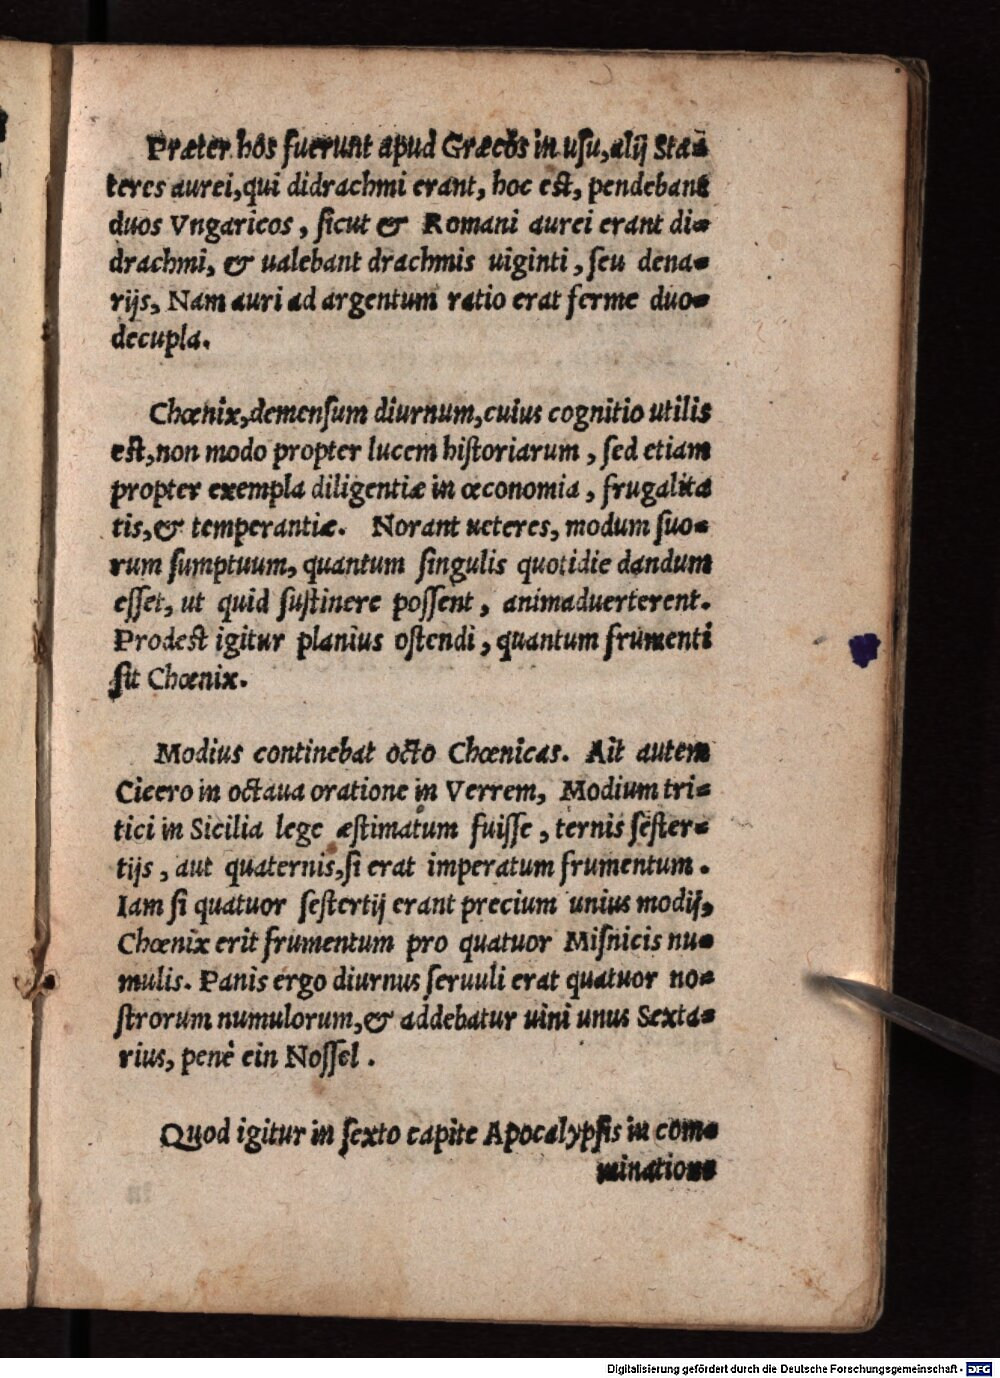 Præter hos fuerunt apud Græcos in uſu, alij Sta-
teres aurei, qui didrachmi erant, hoc est, pendebant
duos Vngaricos, ſicut & Romani aurei erant di-
drachmi, & ualebant drachmis uiginti, ſeu dena-
rijs, Nam auri ad argentum ratio erat ferme duo-
decupla.
Chœnix, demenſum diurnum, cuius cognitio utilis
est, non modo propter lucem hiſtoriarum, ſed etiam
propter exempla diligentiæ in œconomia, frugalita
tis, & temperantiæ. Norant ueteres, modum ſuo-
rum ſumptuum, quantum ſingulis quotidie dandum
eſſet, ut quid ſuſtinere poſſent, animaduerterent.
Prodest igitur planius oſtendi, quantum frumenti
ſit Chœnix.
Modius continebat octo Chœnicas. Ait autem
Cicero in octaua oratione in Verrem, Modium tri-
tici in Sicilia lege æſtimatum fuiſſe, ternis ſeſter-
tijs, aut quaternis, ſi erat imperatum frumentum.
Iam ſi quatuor ſeſtertij erant precium unius modij,
Chœnix erit frumentum pro quatuor Miſnicis nu-
mulis. Panis ergo diurnus ſeruuli erat quatuor no-
ſtrorum numulorum, & addebatur uini unus Sexta-
rius, penè ein Noſſel.
Quod igitur in ſexto capite Apocalypſis in com-
minatione
Digitalisierung gefördert durch die Deutsche Forschungsgemeinschaft - DFG